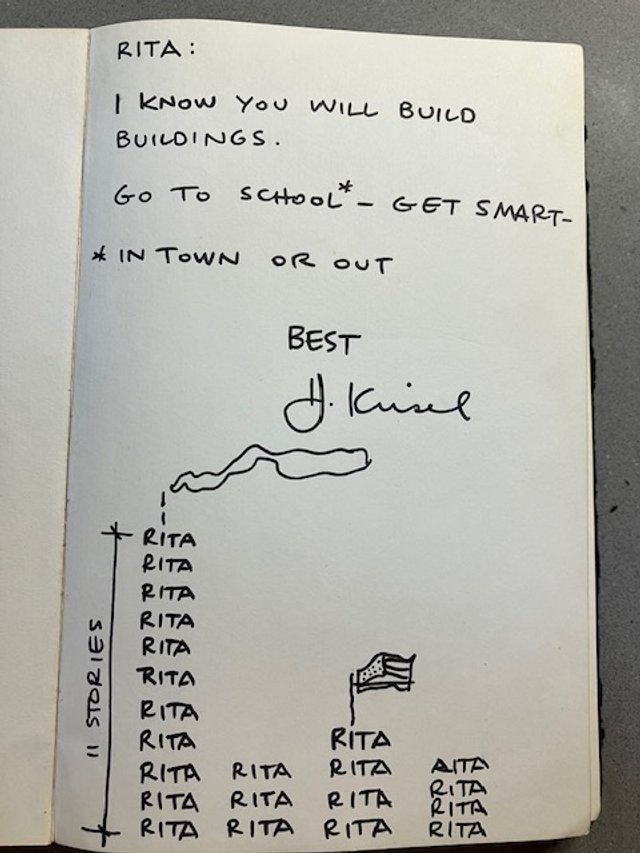 RITA:
I KNOW YOU WILL BUILD
BUILDINGS.
GO TO SCHOOL* – GET SMART–
* IN TOWN OR OUT
BEST
H. Krisel
11 STORIES
RITA
RITA
RITA
RITA
RITA
RITA
RITA
RITA RITA
RITA RITA RITA AITA
RITA
RITA RITA RITA RITA
RITA RITA RITA RITA